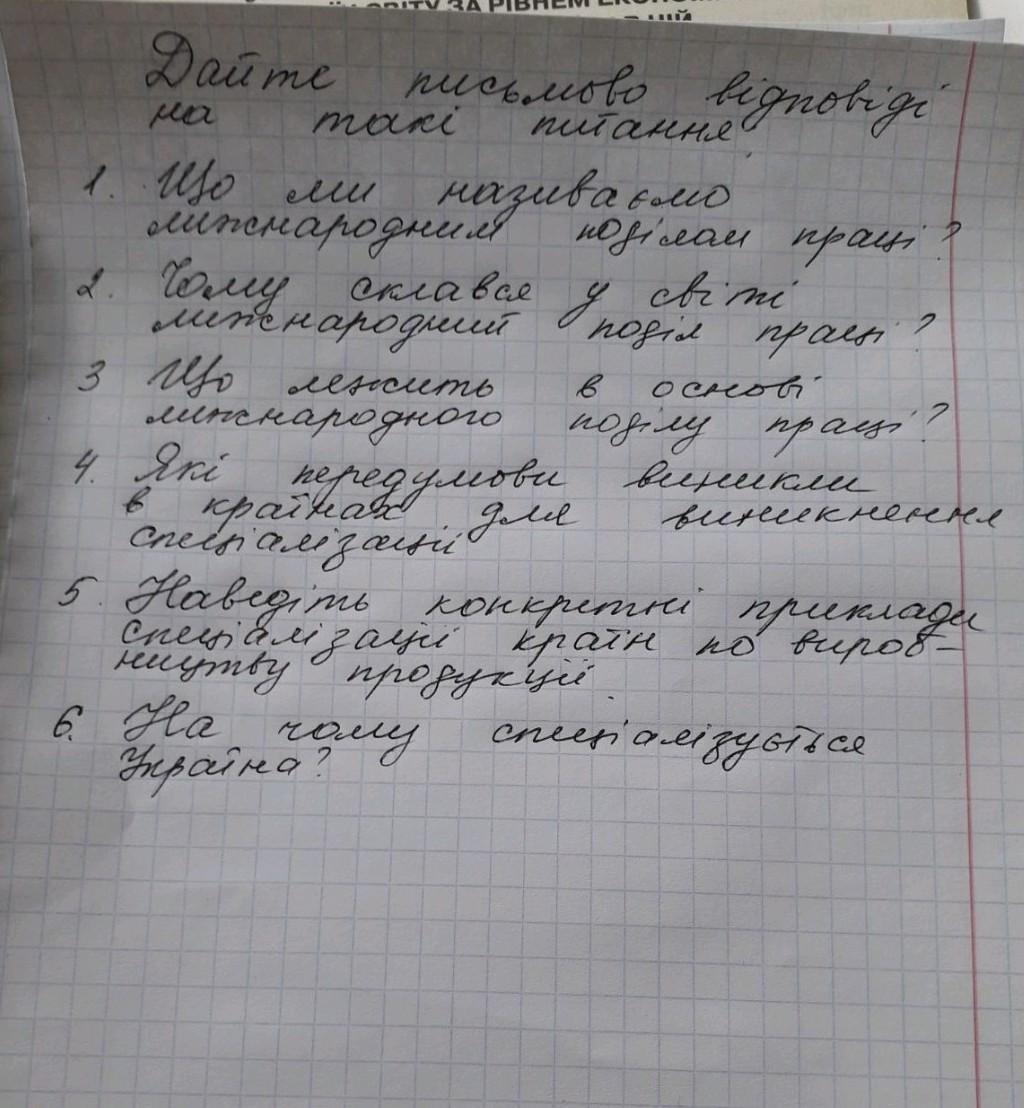 СВІТУ ЗА РІВНЕМ
Дайте письмово відповіді
на такі питання
1. Що ми називаємо
міжнародним поділом праці?
2. Чому склався у світі
міжнародний поділ праці?
3 Що лежить в основі
міжнародного поділу праці?
4. Які передумови виникли
в країнах для виникнення
спеціалізації
5. Наведіть конкретні приклади
спеціалізації країн по вироб-
ництву продукції.
6. На чому спеціалізується
Україна?